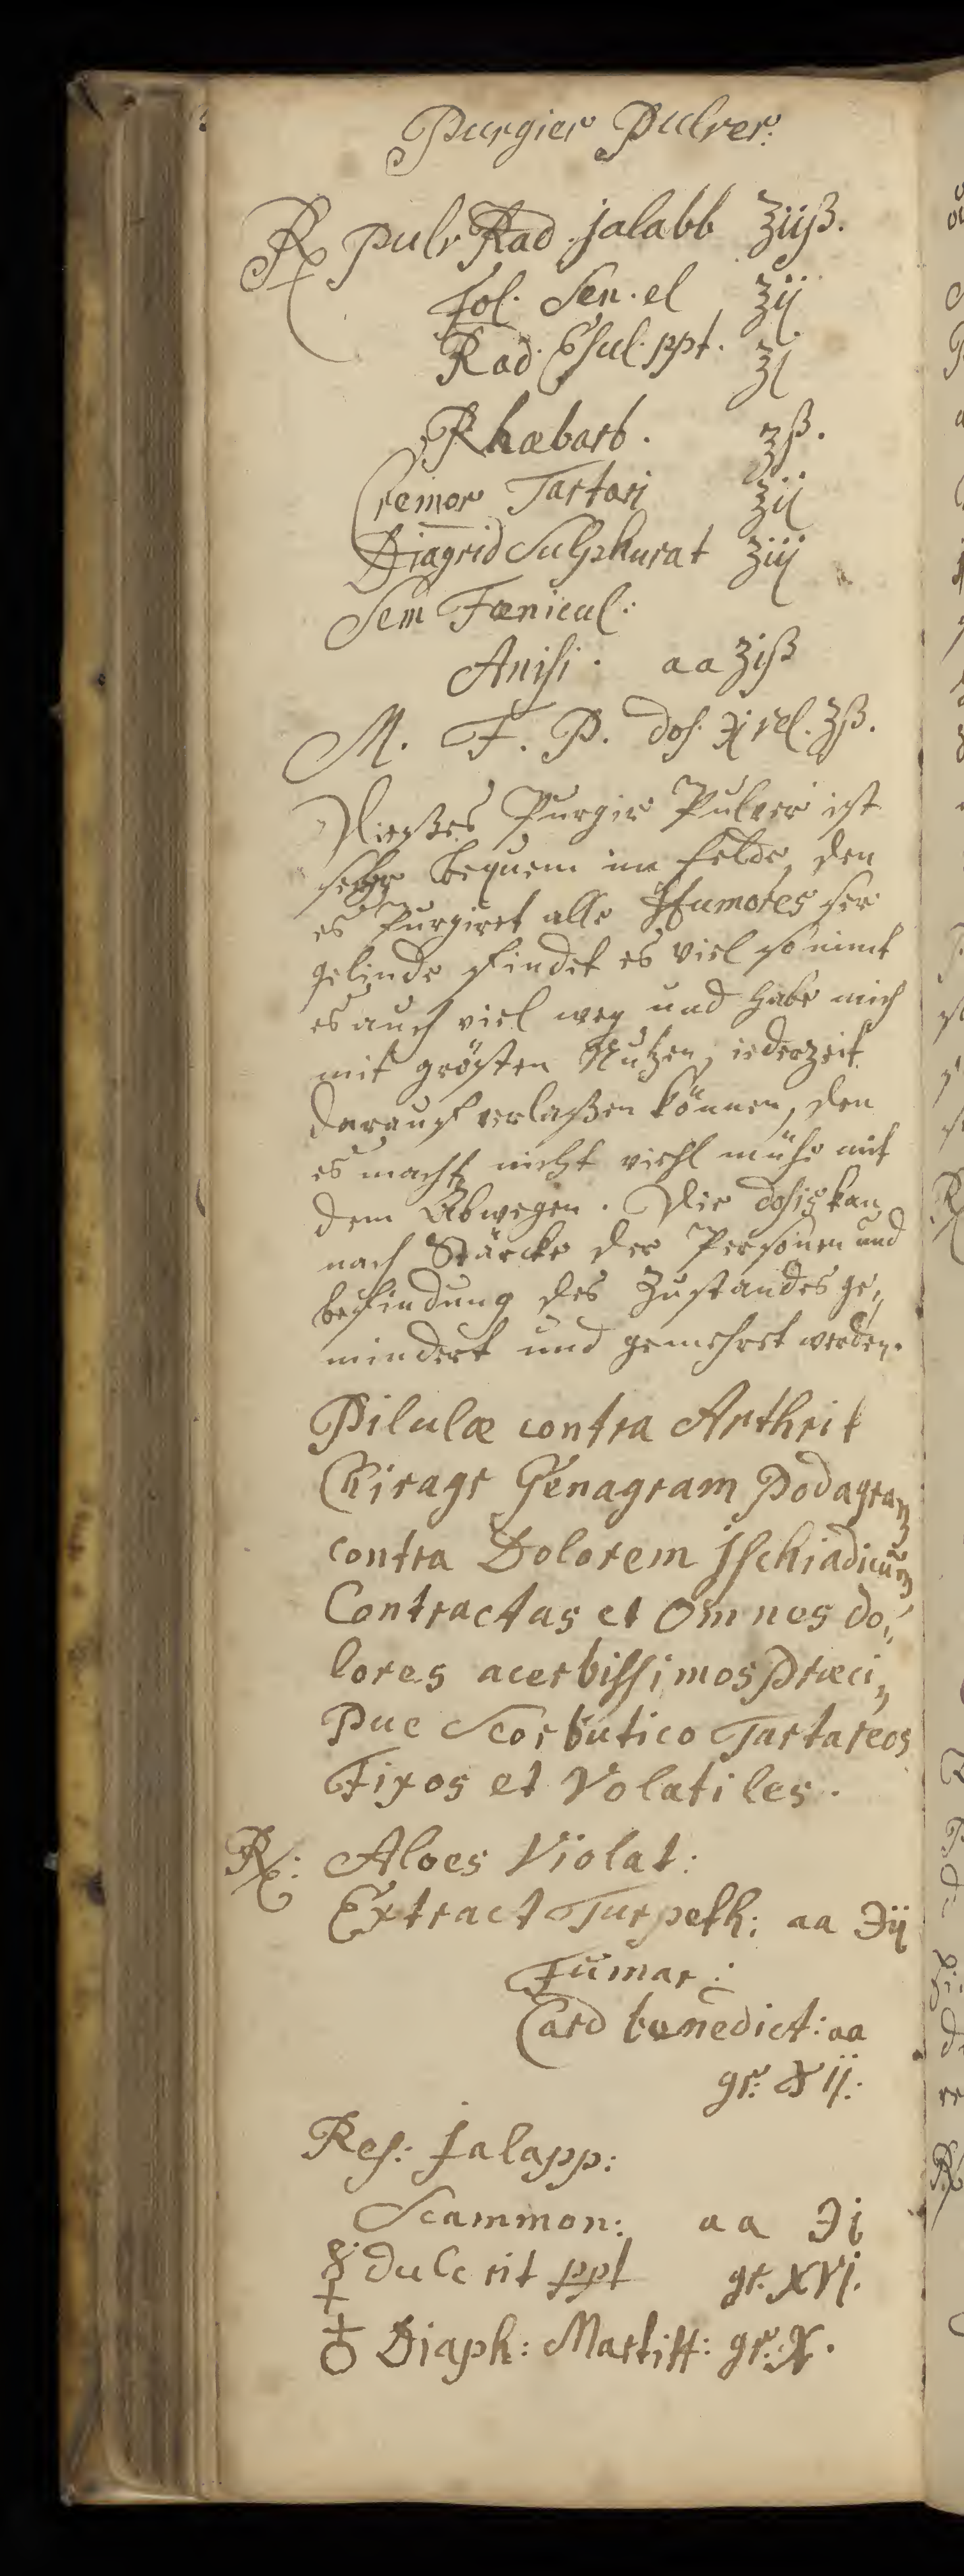 Purgier Pulver.
℞ Pulv Rad. jalabb ʒiiß.
Fol. Sen. el ʒij
Rad. Esul. ppt. ʒj
Rhabarb. ʒß.
Cremor Tartari ʒij
Diagrid Sulphurat ʒiij
Sem Fœnicul:
Anisi. aa ʒiß
M. F. P. dos. ℈j vel. ʒß.
Dießes Purgir Pulver ist
sehr bequem im felde, den
es Purgiret alle Humores ser
gelinde findet es viel so nimt
es auch viel weg und habe mich
mit grösten Nutzen, iederzeit
darauf verlaßen können, den
es macht nicht viehl mühe mit
dem Abwegen. Die dosis kan
nach Stärcke der Personen und
befindung des Zustandes ge„
mindert und gemehret werden.
Pilulæ contra Arthrit
Chiragr Genagram Podagram
contra Dolorem Ischiadicum
Contractas et Omnes do„
lores acerbissimos Præci„
Pue Scorbutico Tartareos
Fixos et Volatiles.
℞: Aloes Violat:
Extract Turpeth: aa ℈ij
Fumar:
Card benedict: aa
gr: XII.
Res: Jalapp:
Scammon: aa ℈j
☿ dulc rit ppt gr. XVI.
♁ Diaph: Martial: gr. X.